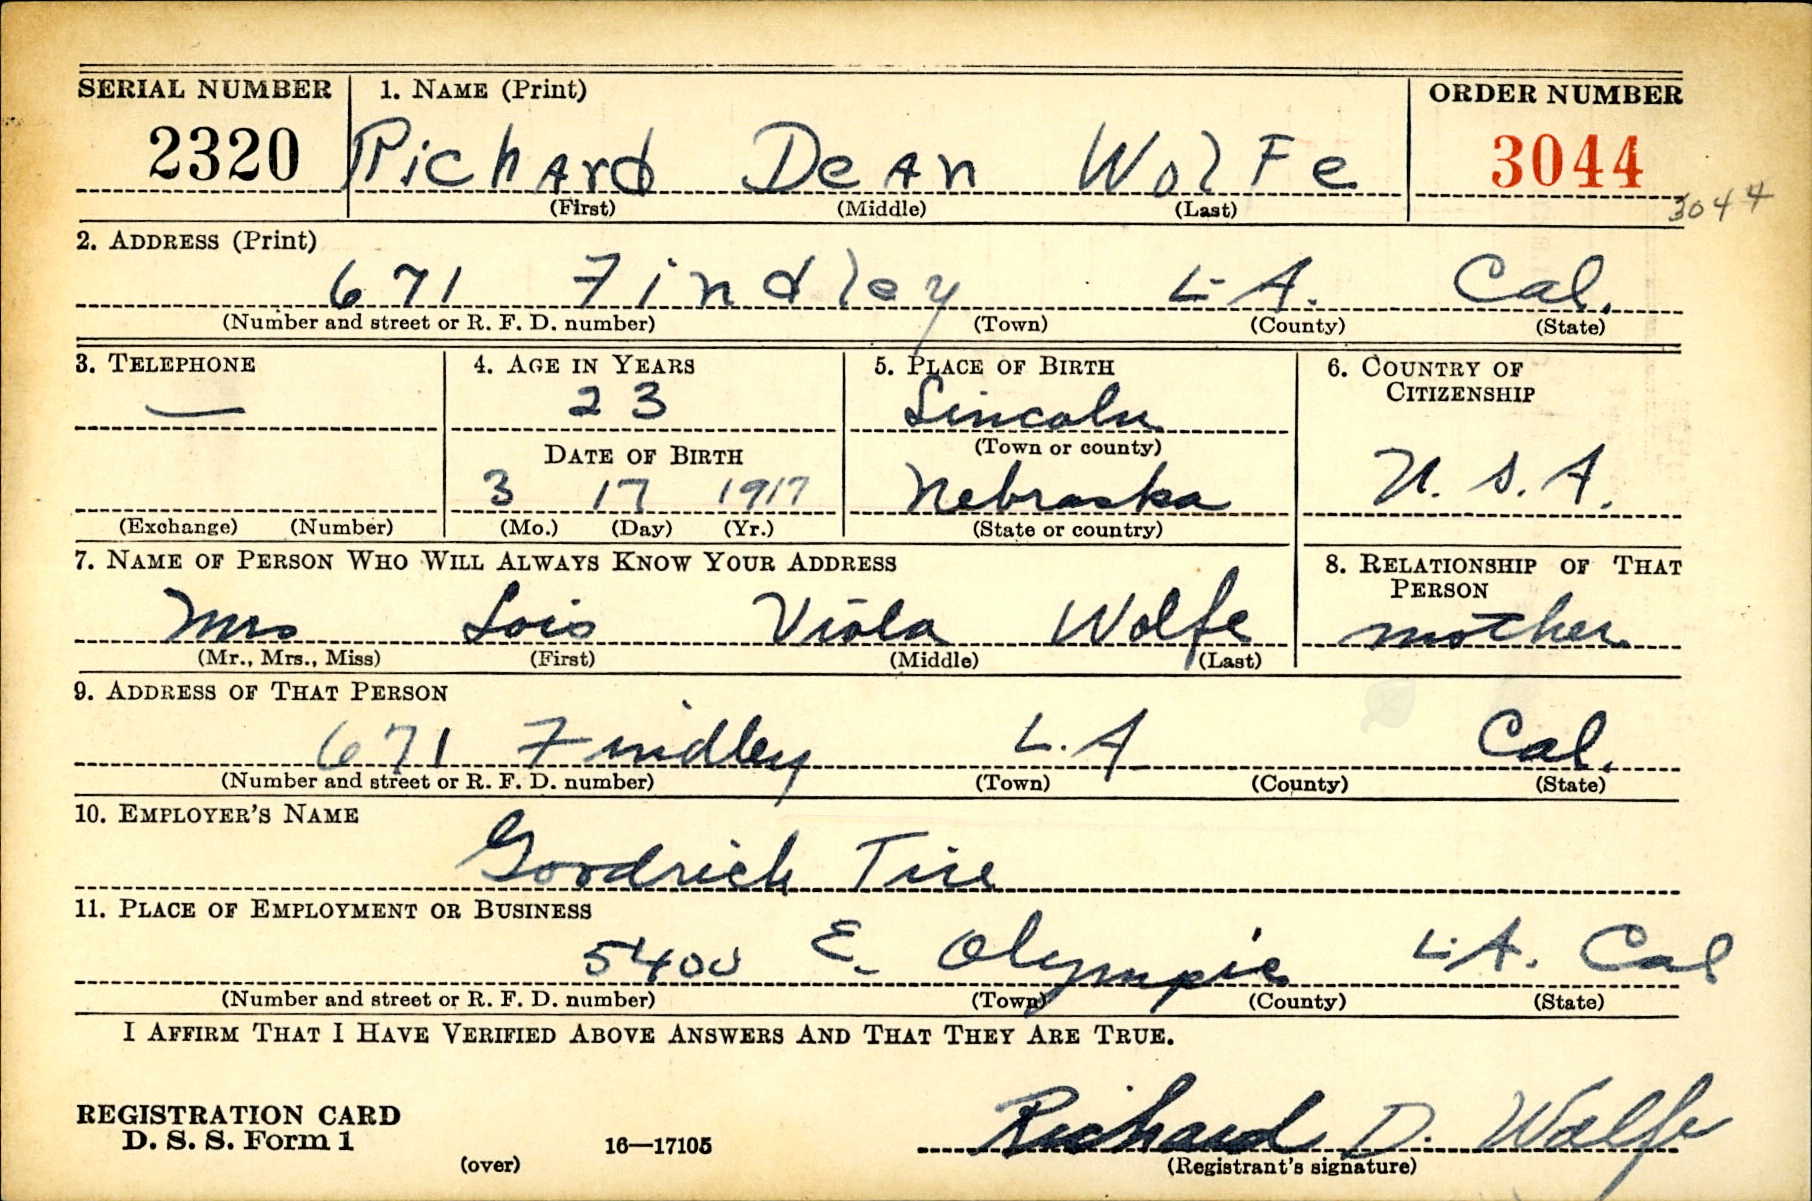 SERIAL NUMBER 1. NAME (Print) ORDER NUMBER
2320 Richard Dean Wolfe 3044
(First) (Middle) (Last) 3044
2. ADDRESS (Print)
671 Findley L.A. Cal.
(Number and street or R. F. D. number) (Town) (County) (State)
3. TELEPHONE 4. AGE IN YEARS 5. PLACE OF BIRTH 6. COUNTRY OF
CITIZENSHIP
— 23 Lincoln
(Town or county)
DATE OF BIRTH
3 17 1917 Nebraska U.S.A.
(Exchange) (Number) (Mo.) (Day) (Yr.) (State or country)
7. NAME OF PERSON WHO WILL ALWAYS KNOW YOUR ADDRESS 8. RELATIONSHIP OF THAT
PERSON
Mrs Lois Viola Wolfe mother
(Mr., Mrs., Miss) (First) (Middle) (Last)
9. ADDRESS OF THAT PERSON
671 Findley L.A Cal.
(Number and street or R. F. D. number) (Town) (County) (State)
10. EMPLOYER'S NAME
Goodrich Tire
11. PLACE OF EMPLOYMENT OR BUSINESS
5400 E. Olympic L.A. Cal
(Number and street or R. F. D. number) (Town) (County) (State)
I AFFIRM THAT I HAVE VERIFIED ABOVE ANSWERS AND THAT THEY ARE TRUE.
REGISTRATION CARD
D. S. S. Form 1 16—17105 Richard D. Wolfe
(over) (Registrant's signature)